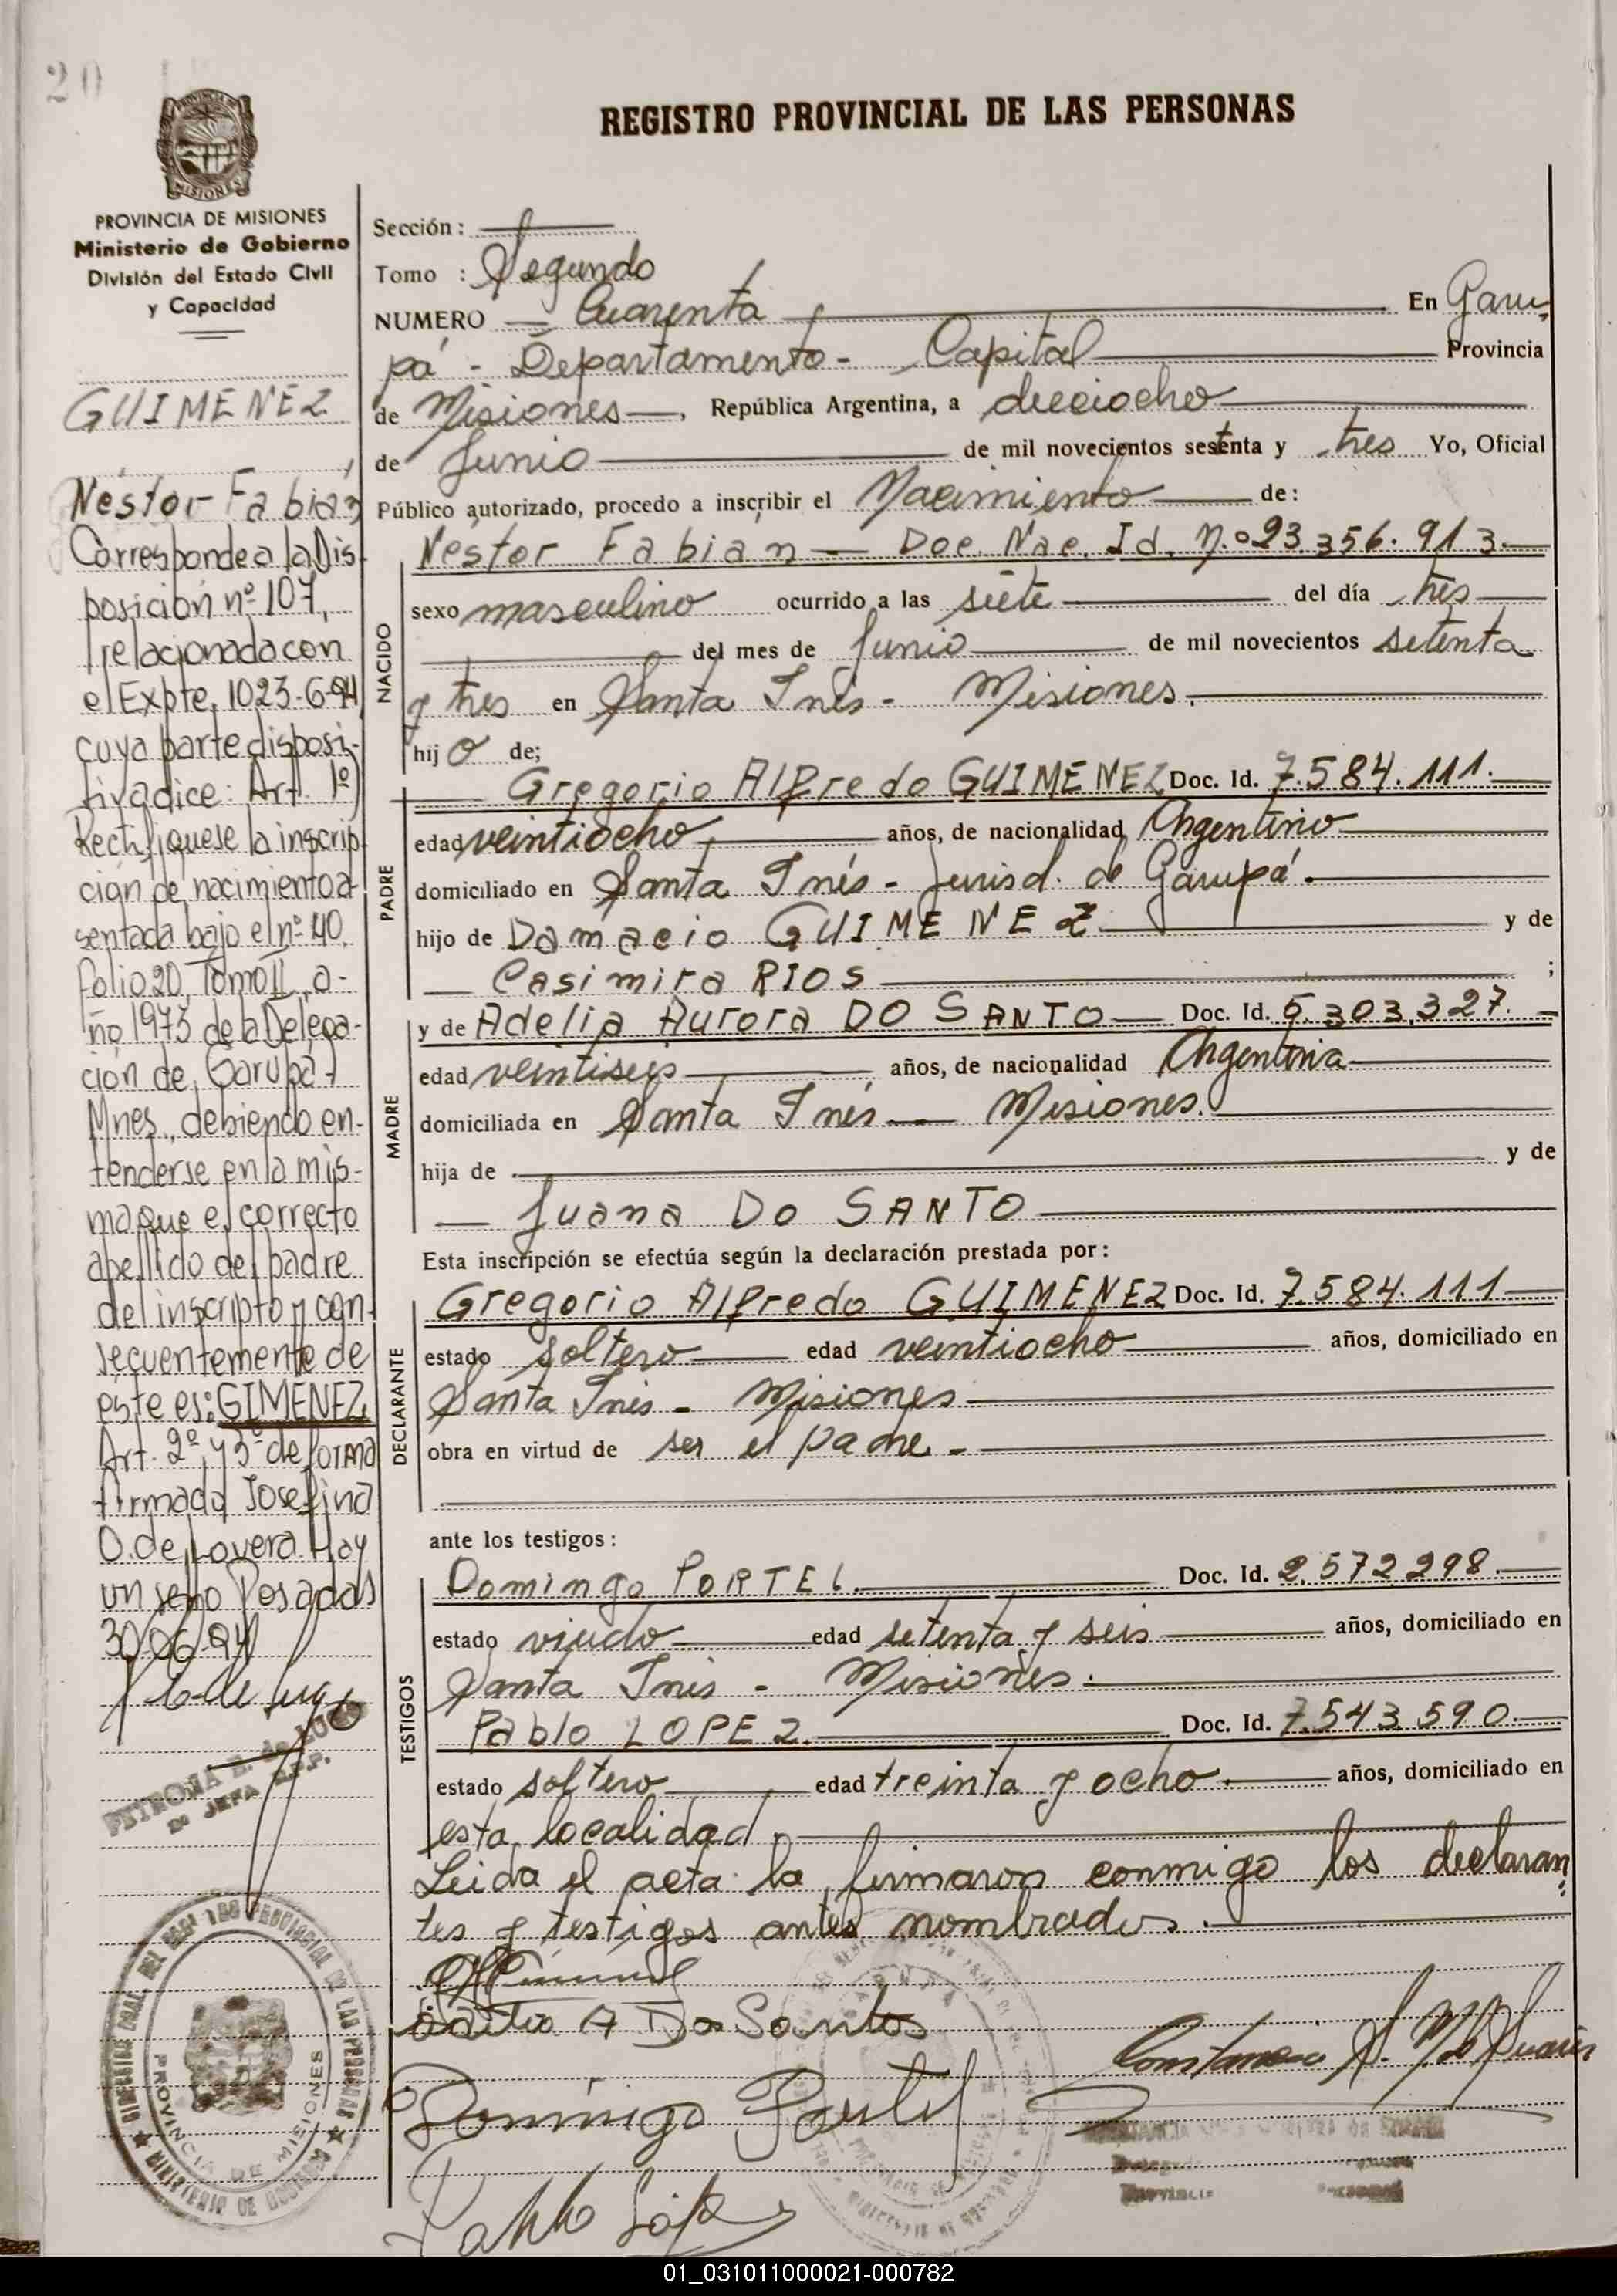 20
REGISTRO PROVINCIAL DE LAS PERSONAS
MISIONES
PROVINCIA DE MISIONES
Ministerio de Gobierno
División del Estado Civil
y Capacidad
GUIMENEZ
Néstor Fabián
Corresponde a la Dis-
posición nº 107,
relacionada con
el Expte. 1023-G-94,
cuya parte disposi-
tiva dice: Art. 1º)
Rectifíquese la inscrip
ción de nacimiento a-
sentada bajo el nº 40,
Folio 20, Tomo II, a-
ño 1973 de la Delega-
ción de Garupá-
Mnes., debiendo en-
tenderse en la mis-
ma que el correcto
apellido del padre
del inscripto y con-
secuentemente de
éste es: GIMENEZ.
Art. 2º y 3º de forma
firmado Josefina
O. de Lovera. Hay
un sello Posadas
30/06-94
PETRONA E. de LUGO
JEFA
DIRECCION GRAL. DEL REGISTRO PROVINCIAL DE LAS PERSONAS
MINISTERIO DE GOBIERNO
PROVINCIA DE MISIONES
Sección :
Tomo : Segundo
NUMERO Cuarenta En Garu-
pá - Departamento - Capital Provincia
de Misiones, República Argentina, a dieciocho
de Junio de mil novecientos sesetenta y tres Yo, Oficial
Público autorizado, procedo a inscribir el Nacimiento de:
NACIDO
Néstor Fabián — Doc. Nac. Id. N.º 23.356.913.
sexo masculino ocurrido a las siete del día tres
del mes de Junio de mil novecientos setenta
y tres en Santa Inés - Misiones.
hijo de;
PADRE
Gregorio Alfredo GUIMENEZ Doc. Id. 7.584.111.
edad veintiocho, años, de nacionalidad Argentino
domiciliado en Santa Inés - Jurisd. de Garupá.
hijo de Damacio GUIMENEZ. y de
Casimira RIOS ;
MADRE
y de Adelia Aurora DO SANTO — Doc. Id. 5.303.327.
edad veintiseis años, de nacionalidad Argentina
domiciliada en Santa Inés — Misiones.
hija de y de
Juana Do SANTO
Esta inscripción se efectúa según la declaración prestada por :
DECLARANTE
Gregorio Alfredo GUIMENEZ Doc. Id. 7.584.111
estado soltero edad veintiocho años, domiciliado en
Santa Inés - Misiones
obra en virtud de ser el padre. -
ante los testigos :
TESTIGOS
Domingo PORTEL. Doc. Id. 2.572.298.
estado viudo edad setenta y seis años, domiciliado en
Santa Inés - Misiones.
Pablo LOPEZ. Doc. Id. 7.543.590.
estado soltero edad treinta y ocho. años, domiciliado en
esta localidad.
Leida el acta la firmaron conmigo los declaran
tes y testigos antes nombrados.
A Do Santos
Domingo Portel
Pablo López
01_031011000021-000782